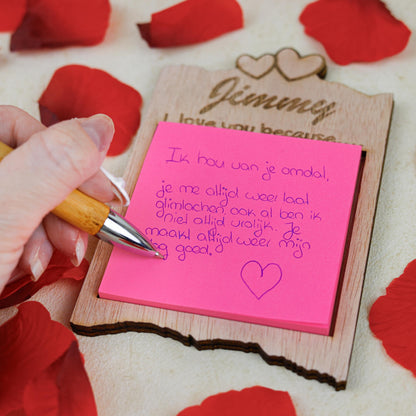 Jimmy
I love you because....
Ik hou van je omdat,
je me altijd weer laat
glimlachen ook al ben ik
niet altijd vrolijk. Je
maakt altijd weer mijn
dag goed.